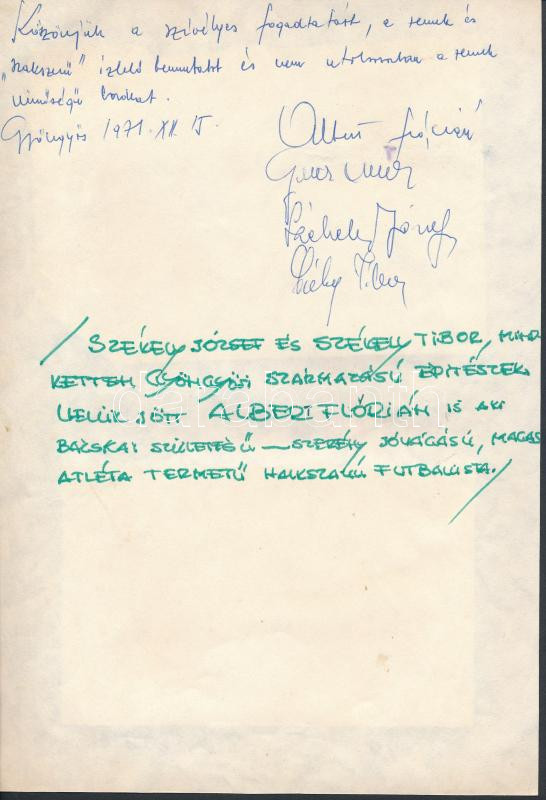 Köszönjük a szívélyes fogadtatást, a remek és
"szakszerű" ízlelő bemutatót és nem utolsósorban a remek
minőségű borokat.
Gyöngyös 1971. XII. 15.
Albert Flórián
Székely József
Székely Tibor
/ SZÉKELY JÓZSEF ÉS SZÉKELY TIBOR, MIND
KETTEN GYÖNGYÖSI SZÁRMAZÁSÚ ÉPITÉSZEK.
VELÜK JÖTT ALBERT FLÓRIÁN IS AKI
BÁCSKAI SZÜLETÉSŰ — SZERÉNY JÓVÁGÁSÚ, MAGAS
ATLÉTA TERMETŰ HALKSZAVÚ FUTBALISTA. /
darabanth